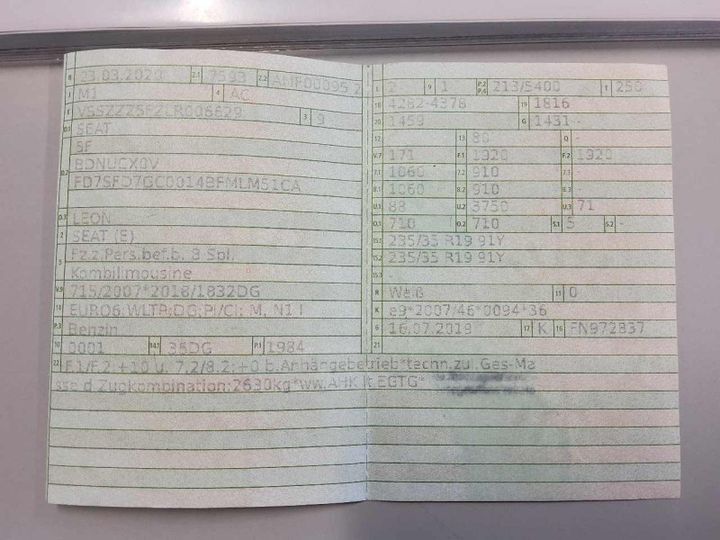 B 23.03.2020 2.1 7593 2.2
J M1 4 AC
E 3 9
D.1 SEAT
5F
D.2
D.3 LEON
2 SEAT (E)
5 Fz.z.Pers.bef.b. 8 Spl.
Kombilimousine
V.9 715/2007*2018/1832DG
14 EURO6;WLTP;DG;PI/CI; M, N1 I
P.3 Benzin
10 0001 14.1 36DG P.1 1984
L 2 9 1 P.2 P.4 213/5400 T 250
18 4282-4378 19 1816
20 1459 G 1431-
12 - 13 80 Q -
V.7 171 F.1 1920 F.2 1920
7.1 1060 7.2 910 7.3 -
8.1 1060 8.2 910 8.3 -
U.1 88 U.2 3750 U.3 71
O.1 710 O.2 710 S.1 5 S.2 -
15.1 235/35 R19 91Y
15.2 235/35 R19 91Y
15.3 -
R Weiß 11 0
K e9*2007/46*0094*36
6 16.07.2019 17 K 16 FN972837
21
22 F.1/F.2: +10 u. 7.2/8.2: +0 b.Anhängebetrieb*techn.zul.Ges-Ma
sse d.Zugkombination:2630kg*ww.AHK lt.EGTG*